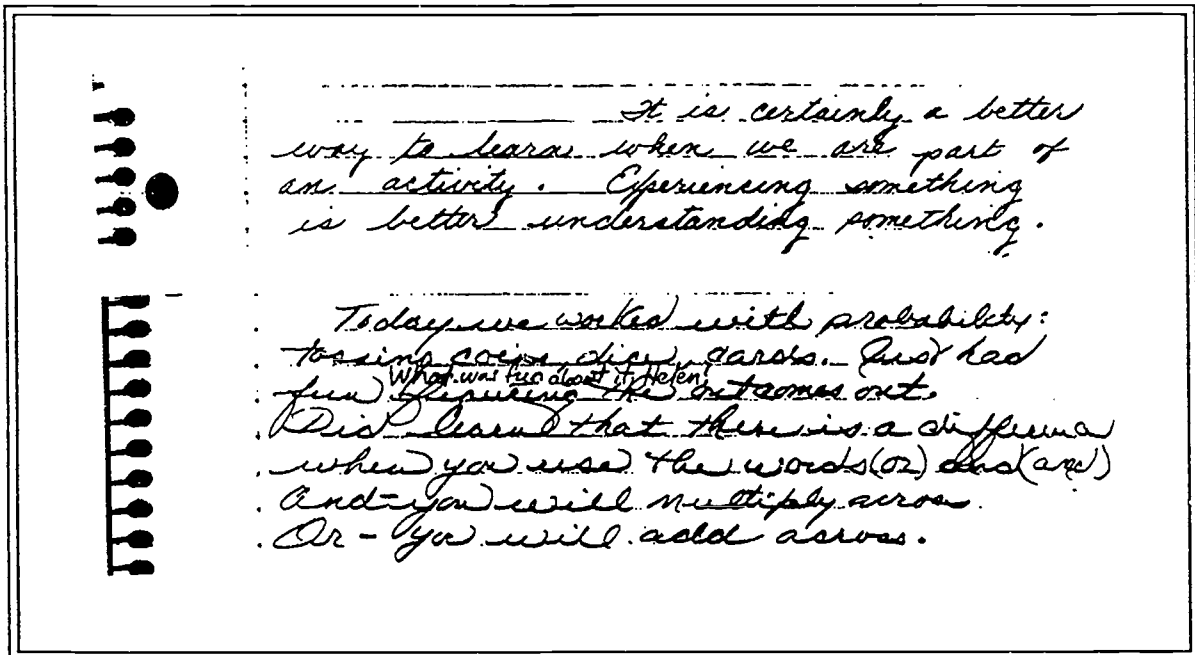 It is certainly a better
way to learn when we are part of
an activity. Experiencing something
is better understanding something.
Today we worked with probability:
tossing coins, dice, cards. Just had
What was fun about it, Helen?
fun figuring the outcomes out.
Did learn that there is a difference
when you use the words (or) and (and)
And - you will multiply across.
Or - you will add across.